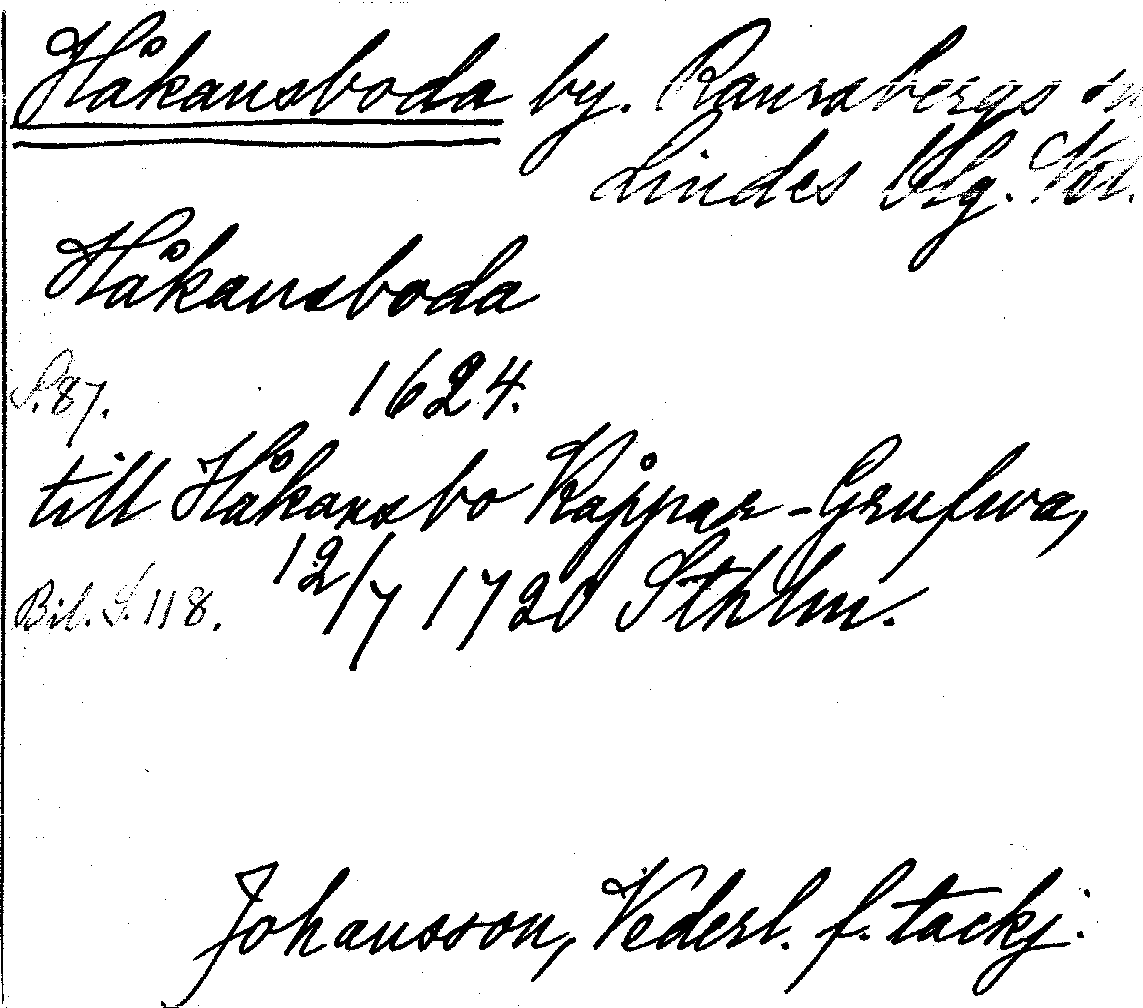 Håkansboda by. Ramsbergs sn
Lindes blg. Vstl.
Håkansboda
S. 87. 1624.
till Håkansbo Kåppar-Grufwa,
Bil. S. 118. 12/7 1720 Sthlm.
Johansson, Vederl. f. tackj.